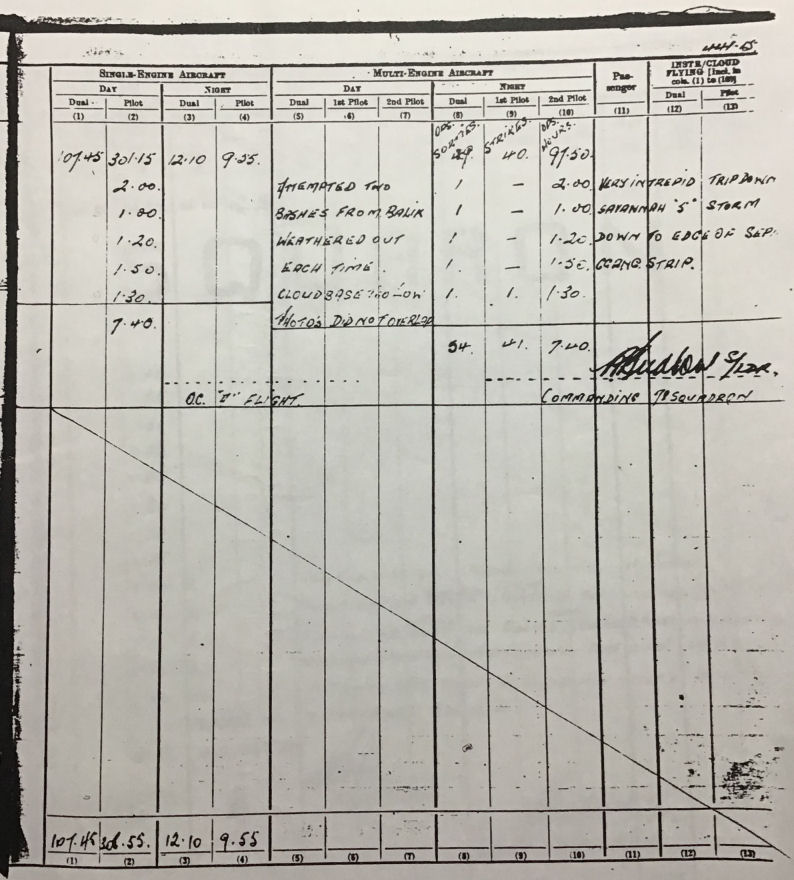 444.15
SINGLE-ENGINE AIRCRAFT MULTI-ENGINE AIRCRAFT Pas-senger INSTR/CLOUD FLYING [Incl. in cols. (1) to (10)]
DAY NIGHT DAY NIGHT
Dual Pilot Dual Pilot Dual 1st Pilot 2nd Pilot Dual 1st Pilot 2nd Pilot Dual Pilot
(1) (2) (3) (4) (5) (6) (7) (8) (9) (10) (11) (12) (13)
OPS. SORTIES. STRIKES. OPS. HOURS.
107.45 301.15 12.10 9.55 40. 97.50.
2.00. ATTEMPTED TWO 1 – 2.00. VERY INTREPID TRIP DOWN
1.00. BASHES FROM BALIK 1 – 1.00. SAVANNAH "S" STORM
1.20. WEATHERED OUT 1 – 1.20. DOWN TO EDGE OF
1.50. EACH TIME. 1. – 1.50. STRIP.
1.30. CLOUD BASE TOO LOW 1. 1. 1.30.
7.40. PHOTO'S DID NOT OVERLAP
54. 41. 7.40.
S/LDR.
O.C. FLIGHT. COMMANDING 78 SQUADRON
107.45 308.55. 12.10 9.55
(1) (2) (3) (4) (5) (6) (7) (8) (9) (10) (11) (12) (13)